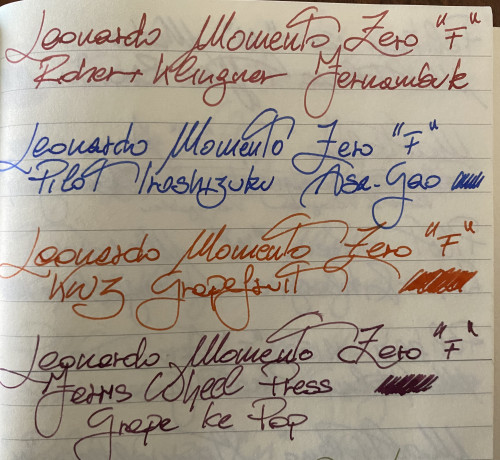 Leonardo Momento Zero "F"
Robert + Klingner Fernambuk
Leonardo Momento Zero "F"
Pilot Iroshizuku Asa-Gao
Leonardo Momento Zero "F"
KWZ Grapefruit
Leonardo Momento Zero "F"
Ferris Wheel Press
Grape Ice Pop